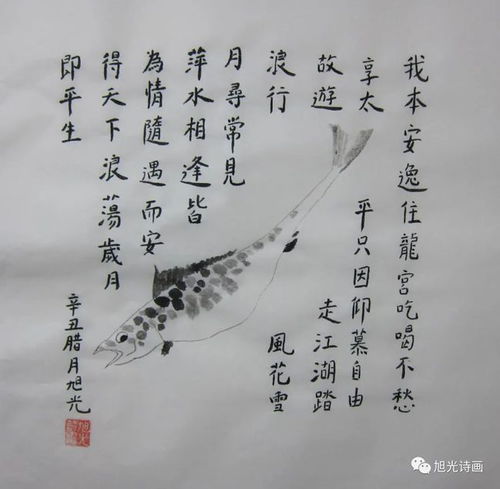 我本安逸住龍宮吃喝不愁
享太平只因仰慕自由
故遊走江湖踏
浪行風花雪
月尋常見
萍水相逢皆
為情隨遇而安
得天下浪蕩歲月
即平生
辛丑腊月旭光
旭光诗画